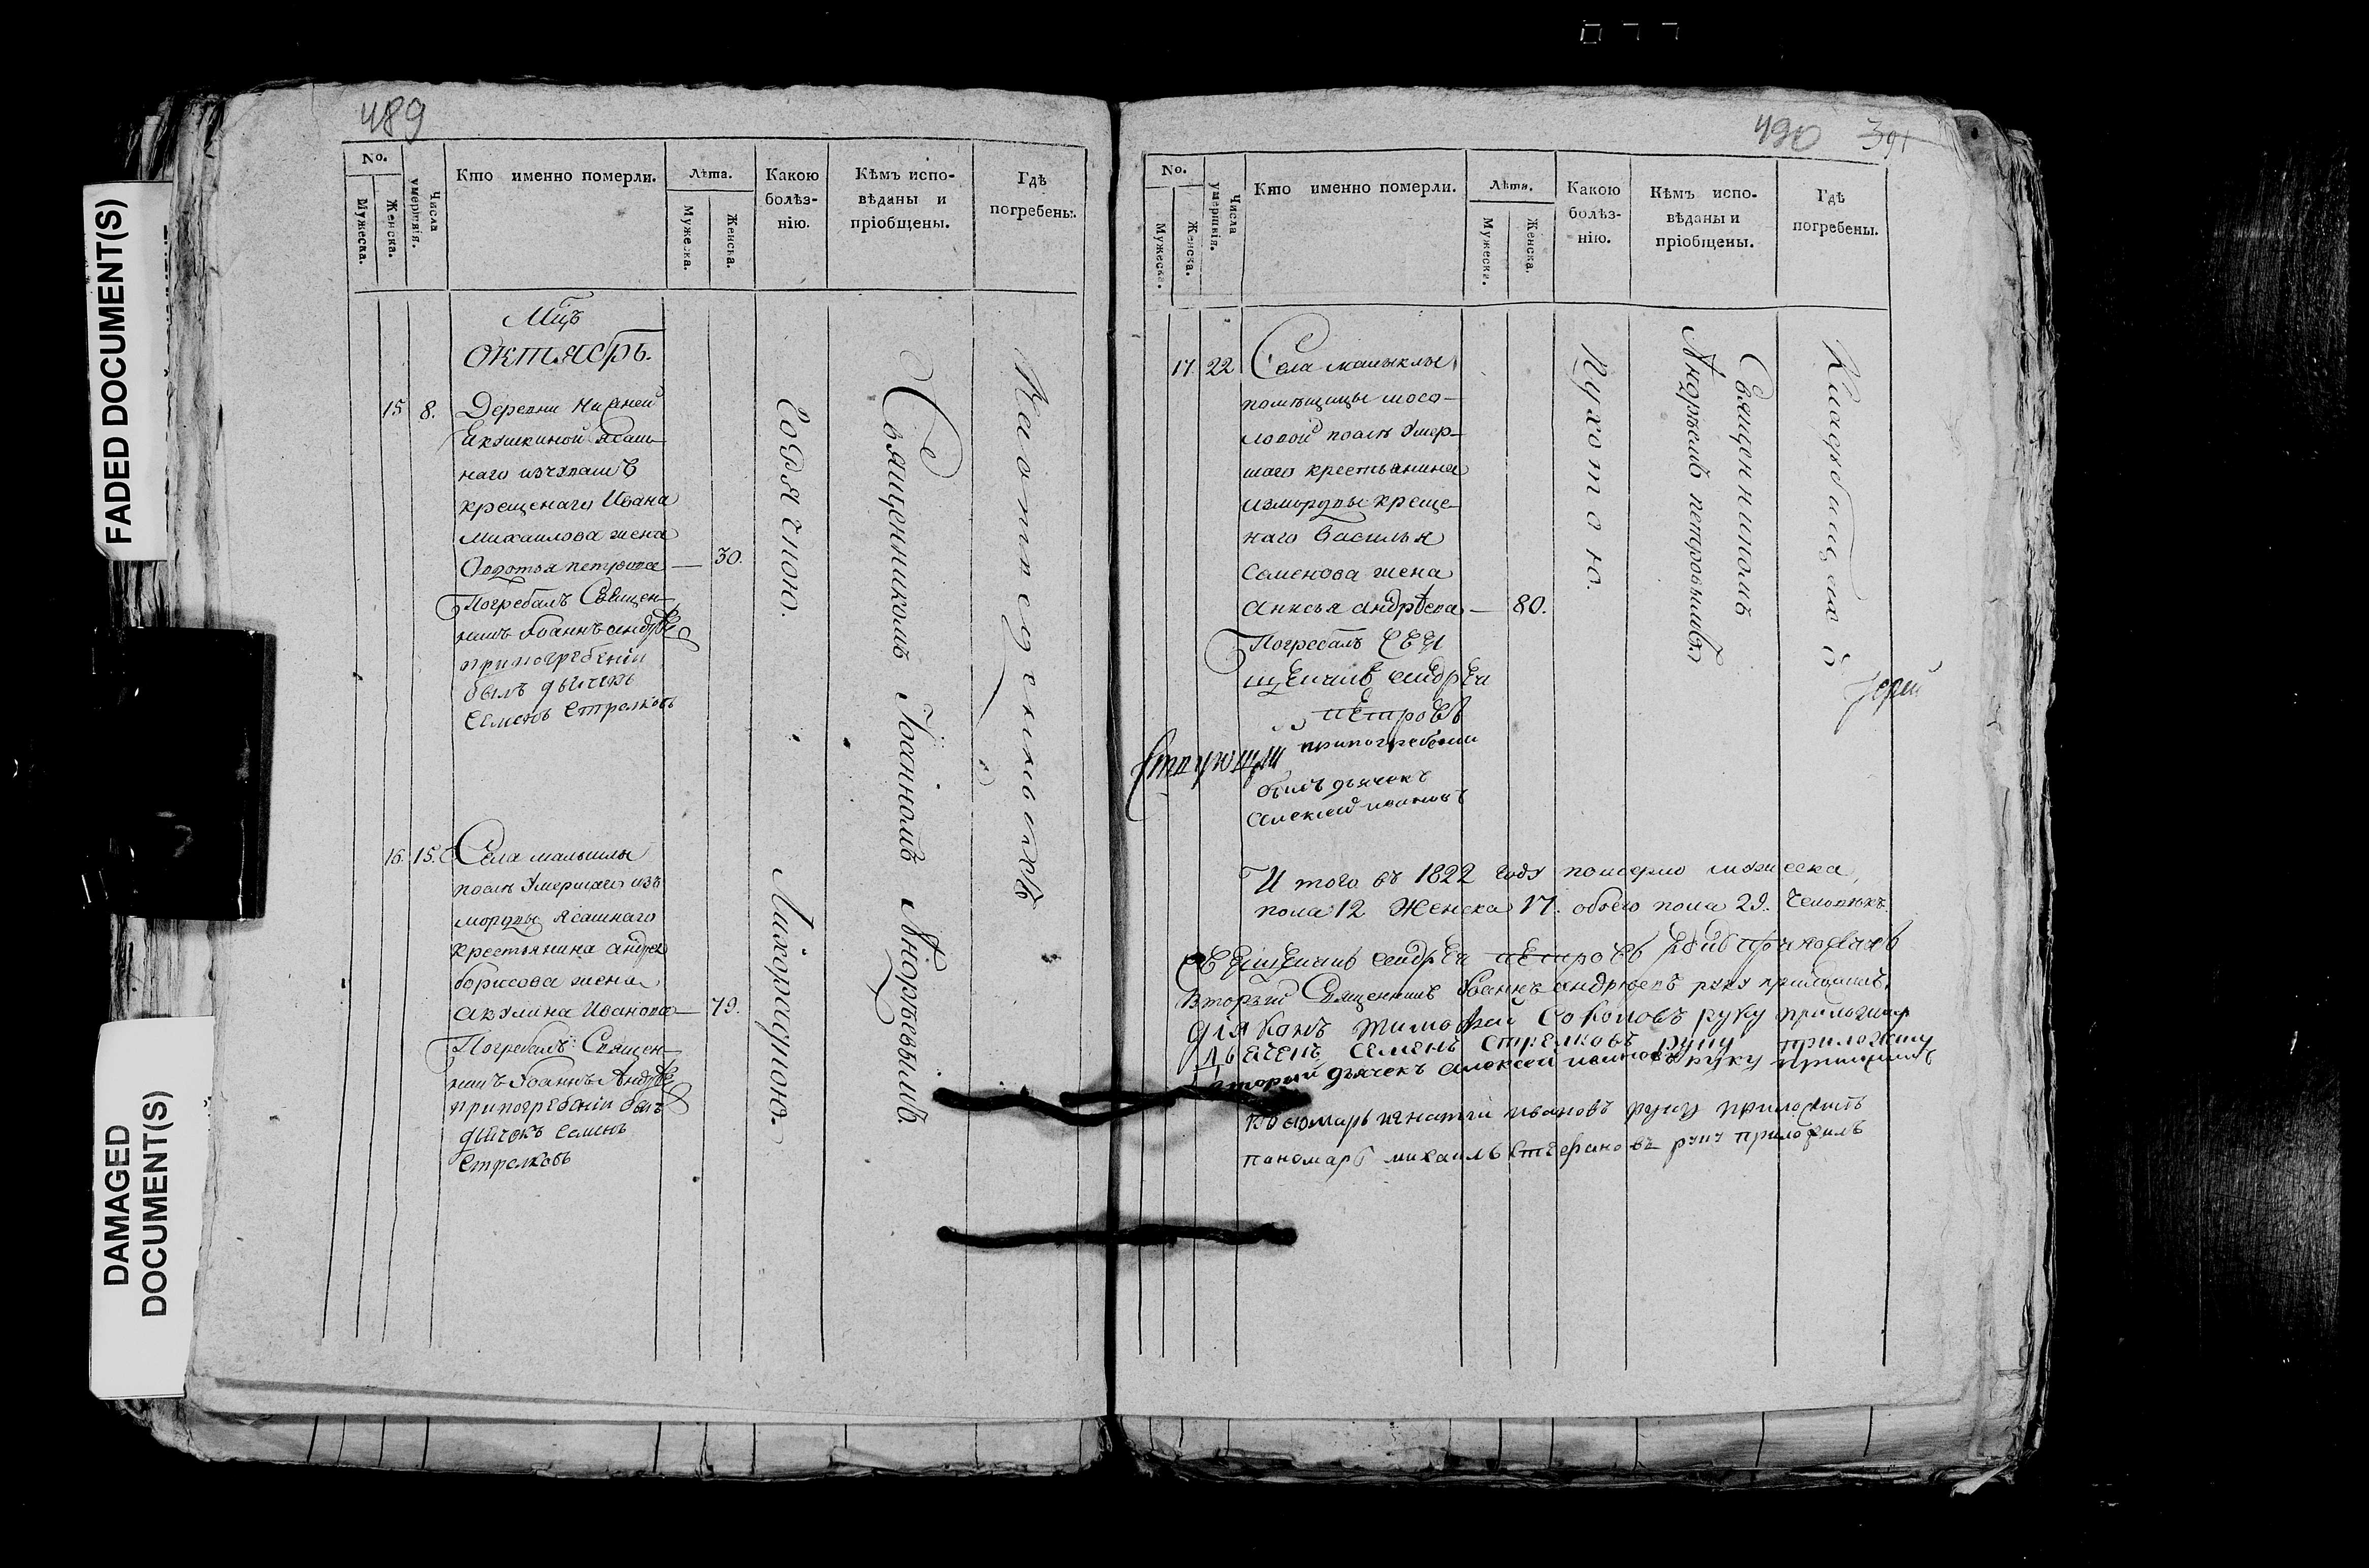 FADED DOCUMENT(S)
DAMAGED
DOCUMENT(S)
489
No.
Мужеска.
Женска.
Числа
умертвія.
Кто именно померли.
Лѣта.
Мужеска.
Женска.
Какою
болѣз-
нію.
Кѣмъ испо-
вѣданы и
пріобщены.
Гдѣ
погребены.
Мцъ
октябрь.
15 8. Деревни
Якушкиной ясаш-
наго изъ чуваш
крещенаго Ивана
Михаилова жена
Авдотья Петрова — 30.
Погребалъ Священ-
никъ Іоаннъ Андре
при погребеніи
былъ дьячекъ
Семенъ Стрелковъ
Священникомъ Іоанномъ Андреевымъ
16 15. Села малыклы
посля умершаго изъ
мордвы ясашнаго
крестьянина Андрея
борисова жена
акулина Иванова — 79.
Погребалъ Священ-
никъ Іоаннъ Андре
при погребеніи былъ
дьячокъ Семенъ
Стрелковъ
490 391
No.
Мужеска.
Женска.
Числа
умертвія.
Кто именно померли.
Лѣта.
Мужеска.
Женска.
Какою
болѣз-
нію.
Кѣмъ испо-
вѣданы и
пріобщены.
Гдѣ
погребены.
17 22 Села малыклы
помѣщицы мосо-
ловой послѣ умер-
шаго крестьянина
из мордвы креще-
наго Василья
Семенова жена
анисья андрѣева — 80.
Погребалъ свя
щенникъ андрей
петровъ
при погребении
былъ дьячекъ
алексей ивановъ
Священникомъ
Андреемъ петровымъ
Іерей
И того въ 1822 году померло мужеска
пола 12 Женска 17. обоего пола 29. человѣкъ.
священникъ андрей петровъ
Вторый Священникъ Іоаннъ андрѣевъ руку приложилъ.
дияконъ тимофей соколовъ руку приложил
Дьячекъ Семенъ Стрелковъ руку приложилъ
Вторый дьячекъ алексей ивановъ руку приложилъ
Пономарь игнатий ивановъ руку приложилъ
пономарь михаилъ стефановъ руку приложилъ